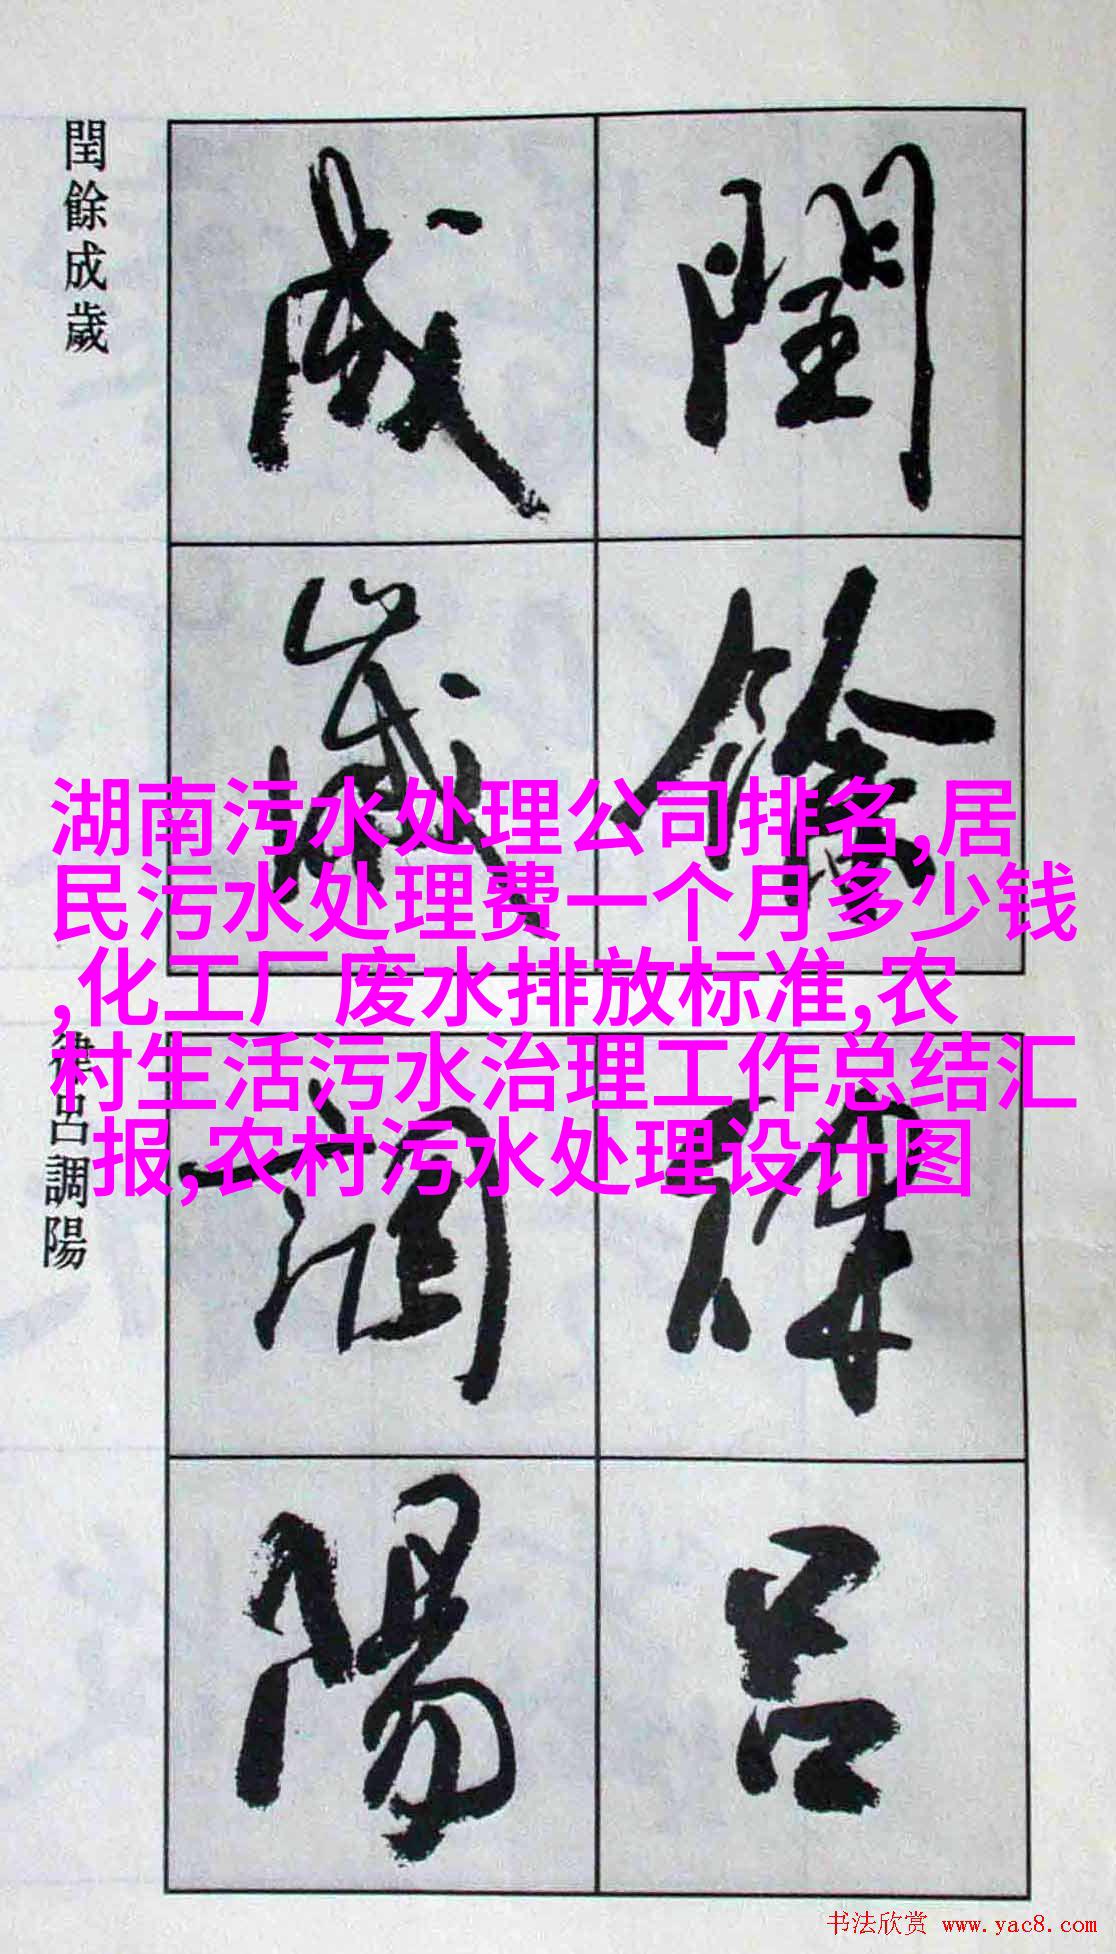 閏餘成歲
閏餘
成歲
湖南污水处理公司排名,居
民污水处理费一个月多少钱
,化工厂废水排放标准,农
村生活污水治理工作总结汇
报,农村污水处理设计图
律呂調陽
律呂
調陽
书法欣赏 www.yac8.com